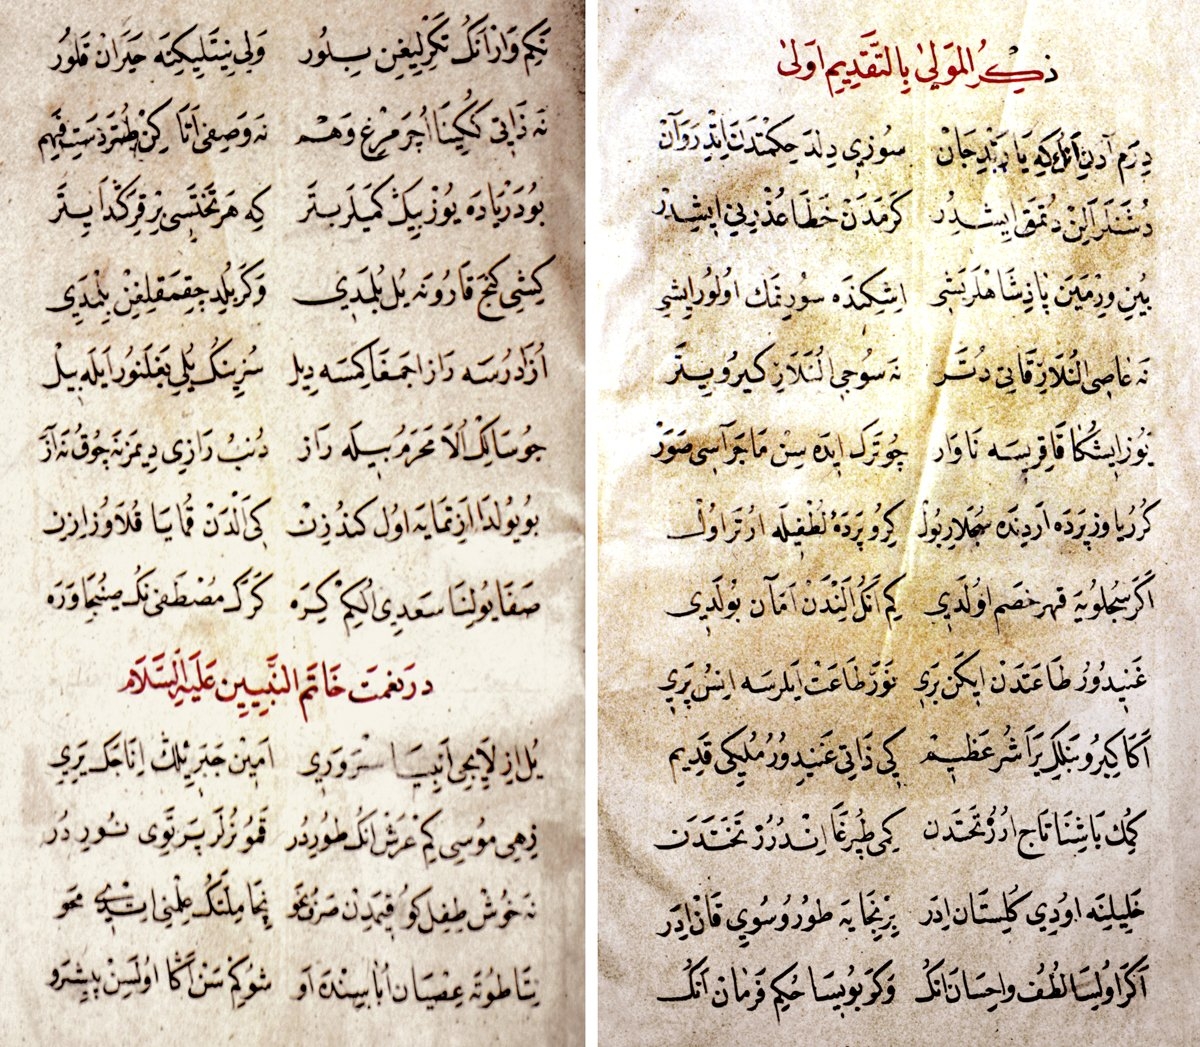 ذكر المولى بالتقديم اولى
درم آدن انك كه ياربدر جان سوزي دلدَ حكمتدن ايتدر روان
دشنلر الن دتمق ايشدر كرمدن خطا عذريني ايشدر
يين ورمين پاذشاهلر بشى اشكنده سورتمك اولور ايشي
نه عاصى النلارِ قاتى دتر نه سوجى النلار كيرو يتر
يوز ايشكا قاقريسه ناوار چو ترك ايده سن ماجراسى صور
كرر ياوز پرده اردنده سچلار بول كيرو پرده لطفيله ارتر اول
اكر سچلويه قهر خصم اولدي كم انك الندن امان بولدي
غنيدور طاعتدن ايكن بري نوز طاعت ايلرسه انس پري
اكا كيرو بنلك يرا شر عظيم كي ذاتي غنيدور ملكي قديم
كمك باشنا تاج ارر تختدن كمى طپرغا اندرر تختدن
خليلنه اودي كلستان ادر يرنجايه طور وسويي قان ادر
اكر اوليسا لطف واحسان انك وكر بويسا حكم فرمان انك
نكم وار انك تكرليغن بلور ولي نيتليكنه حيران قلور
نه ذاتي ككينا اچر مرغ وهم نه وصفى اتا كن طتر دست فهم
بو دريا ده يوز بيك كميلر بتر كه هر تختسى بر قركدا يتر
كيشي كنج قارونه يل بلمدي وكر بلد چقمقلغن بلمدي
ازادرسه راز اجمغا كمسه ديل سزينك يلي بغلنور ايله بيل
چو سالك الا محرم بيله راز دنب رازي ديمزنه چوق نه آز
بو يولدا ازتمايه اول كندزن كي الدن قمايا قلاوز ازن
صفا يولنا سعدي الكم كره كرك مصطفى نك صنجا وره
در نعمت خاتم النبيين عليه السلام
يل ازلايجى انبيا سروري امين جبريلك اناجك يري
زهي موسى كم عرش انك طوردر قمو نزلر پرتوى نوردر
نه خوش طفل كو فيمدن صرف نحو نجا ملتك علمنى اتدي محو
يتا طوته عصيان اباسنده او شو كم سن اكا اولسن پيشرو